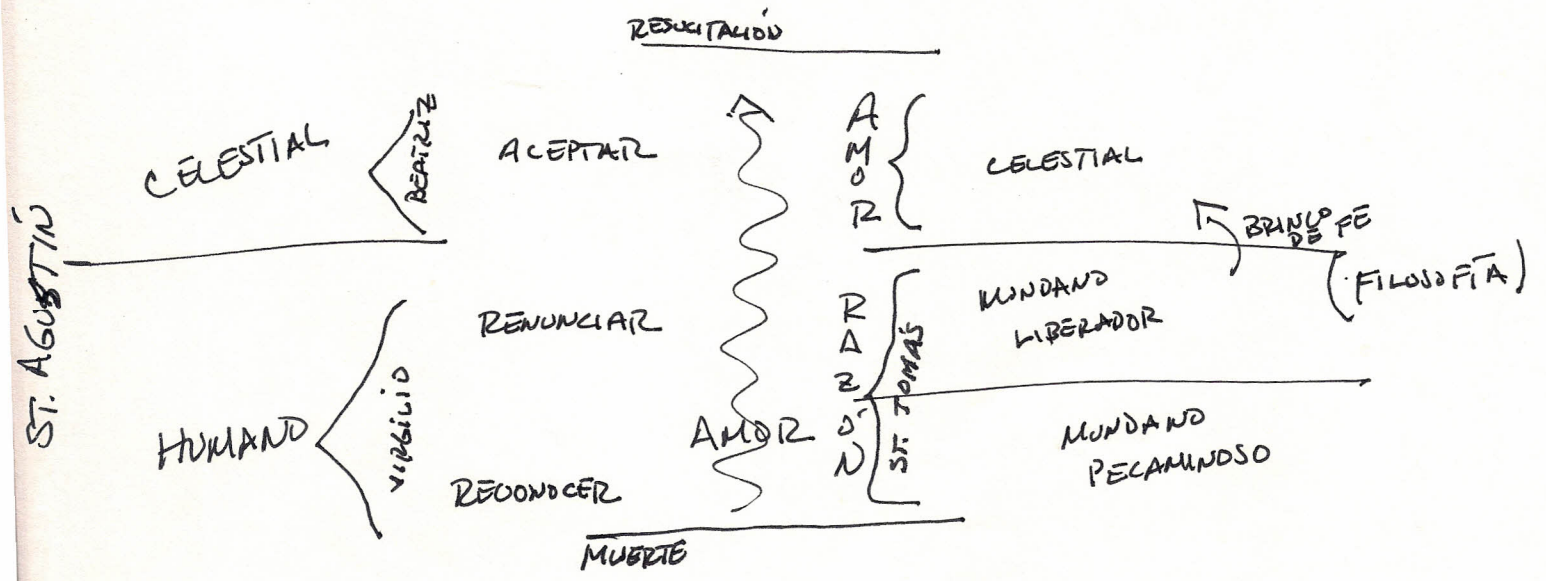 RESUCITACIÓN
ST. AGUSTÍN
CELESTIAL
BEATRIZ
ACEPTAR
AMOR
CELESTIAL
BRINCO
DE FE
(FILOSOFÍA)
HUMANO
VIRGILIO
RENUNCIAR
RECONOCER
AMOR
RAZÓN
ST. TOMÁS
MUNDANO
LIBERADOR
MUNDANO
PECAMINOSO
MUERTE